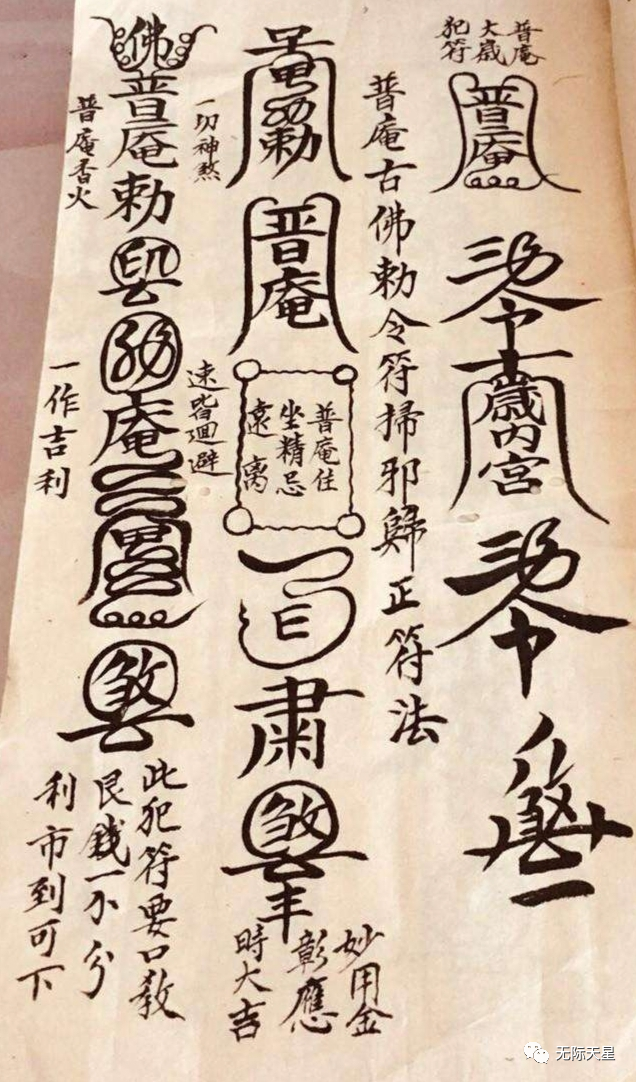 普庵
大歲
犯符
普庵
歲內宮
普庵古佛勅令符掃邪歸正符法
勅
普庵
普庵住
坐精忌
遠离
肅
煞
妙用金
彰應
時大吉
一切神煞
速皆迴避
佛
普庵勅
印
庵
煞
普庵香火
一作吉利
此犯符要口教
艮錢一分
利市到可下
无际天星